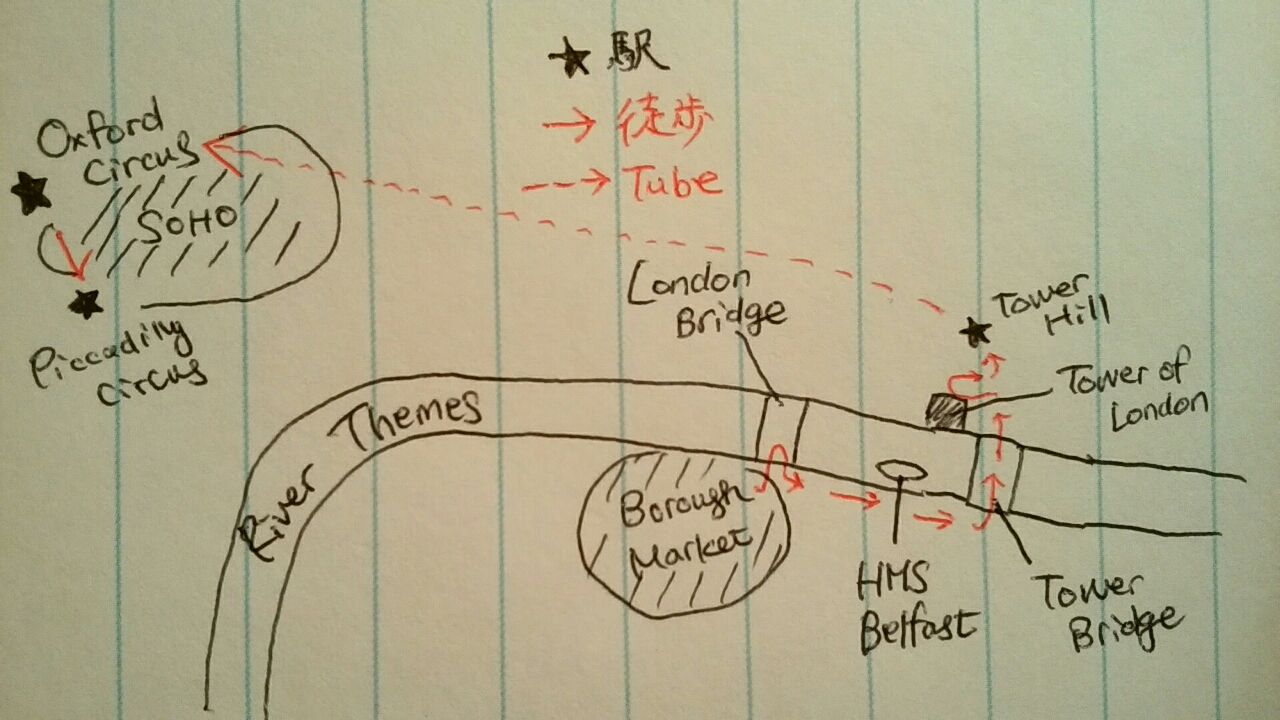 ★ 駅
→ 徒歩
--→ Tube
Oxford
Circus
SOHO
Piccadilly
Circus
London
Bridge
Tower
Hill
Tower of
London
River Themes
Borough
Market
HMS
Belfast
Tower
Bridge